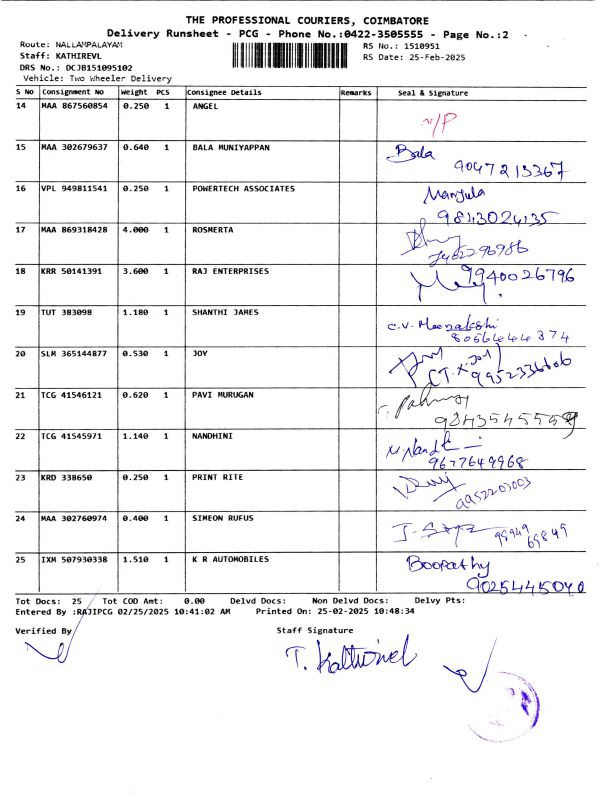 THE PROFESSIONAL COURIERS, COIMBATORE
Delivery Runsheet - PCG - Phone No.:0422-3505555 - Page No.:2
Route: NALLAMPALAYAM RS No.: 1510951
Staff: KATHIREVL RS Date: 25-Feb-2025
DRS No.: DCJB151095102
Vehicle: Two Wheeler Delivery
S No Consignment No Weight PCS Consignee Details Remarks Seal & Signature
14 MAA 867560854 0.250 1 ANGEL N/P
15 MAA 302679637 0.640 1 BALA MUNIYAPPAN Bala
9047213367
16 VPL 949811541 0.250 1 POWERTECH ASSOCIATES Manjula
9843024135
17 MAA 869318428 4.000 1 ROSMERTA
18 KRR 50141391 3.600 1 RAJ ENTERPRISES 9940026796
19 TUT 383098 1.180 1 SHANTHI JAMES C.V. Meenakshi
20 SLM 365144877 0.530 1 JOY
21 TCG 41546121 0.620 1 PAVI MURUGAN
22 TCG 41545971 1.140 1 NANDHINI
9677649968
23 KRD 338650 0.250 1 PRINT RITE
24 MAA 302760974 0.400 1 SIMEON RUFUS
25 IXM 507930338 1.510 1 K R AUTOMOBILES Boopathy
9025445040
Tot Docs: 25 Tot COD Amt: 0.00 Delvd Docs: Non Delvd Docs: Delvy Pts:
Entered By :RAJIPCG 02/25/2025 10:41:02 AM Printed On: 25-02-2025 10:48:34
Verified By Staff Signature